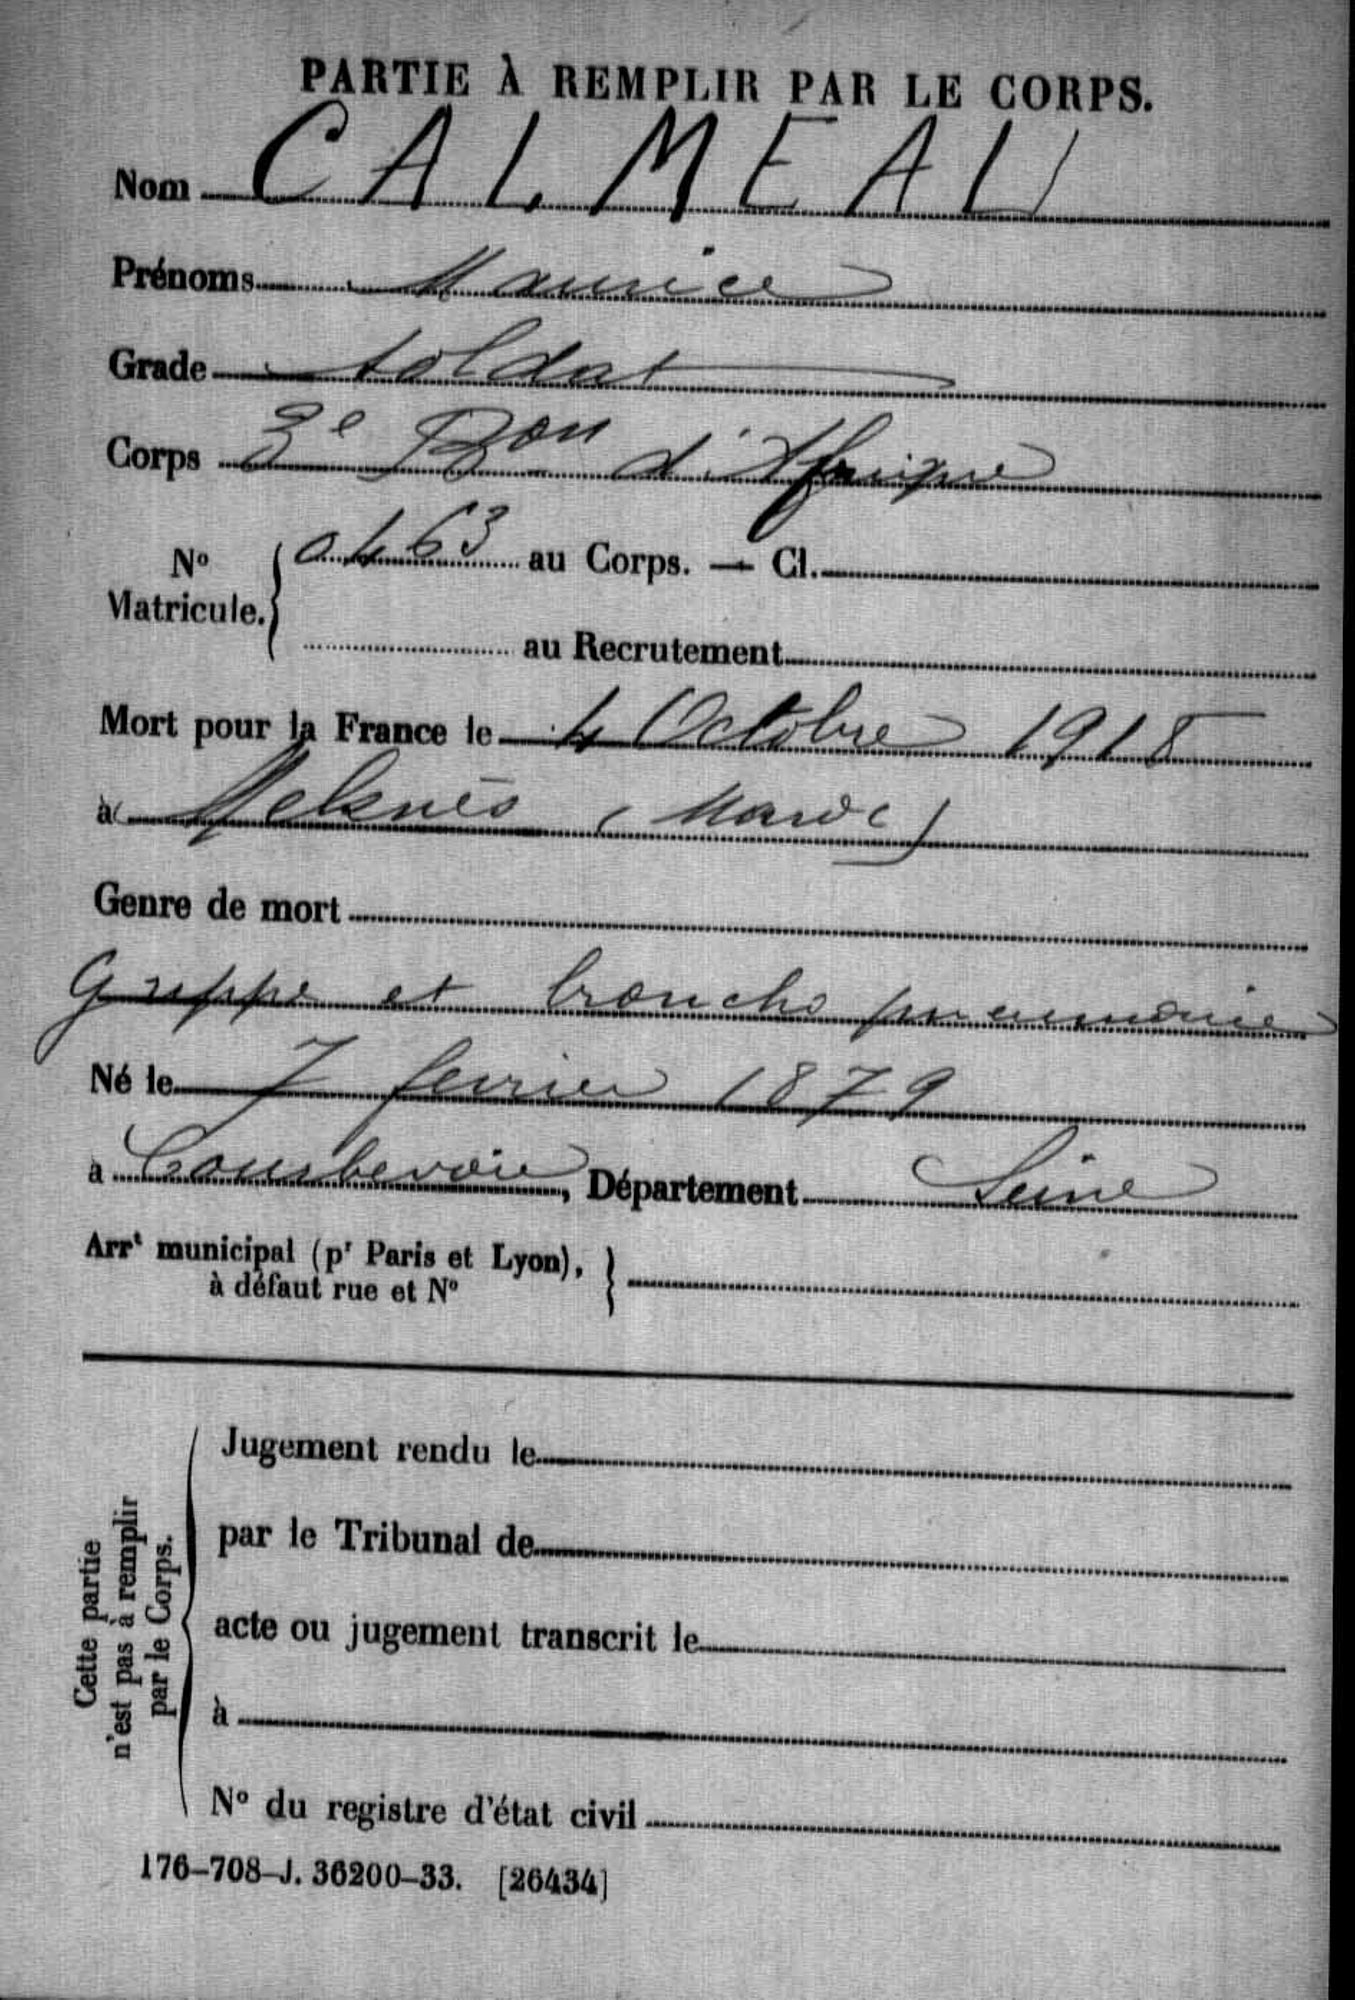 PARTIE À REMPLIR PAR LE CORPS.
Nom CALMEAU
Prénoms Maurice
Grade soldat
Corps 3e Bon d'Afrique
No Matricule. 0463 au Corps. — Cl.
au Recrutement
Mort pour la France le 4 Octobre 1918
à Meknès (Maroc)
Genre de mort
Grippe et broncho pneumonie
Né le 7 février 1879
à Courbevoie, Département Seine
Arrt municipal (pr Paris et Lyon),
à défaut rue et No
Cette partie
n'est pas à remplir
par le Corps.
Jugement rendu le
par le Tribunal de
acte ou jugement transcrit le
à
No du registre d'état civil
176-708-J. 36200-33. [26434]